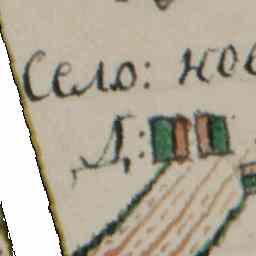 Село: нов
Д: